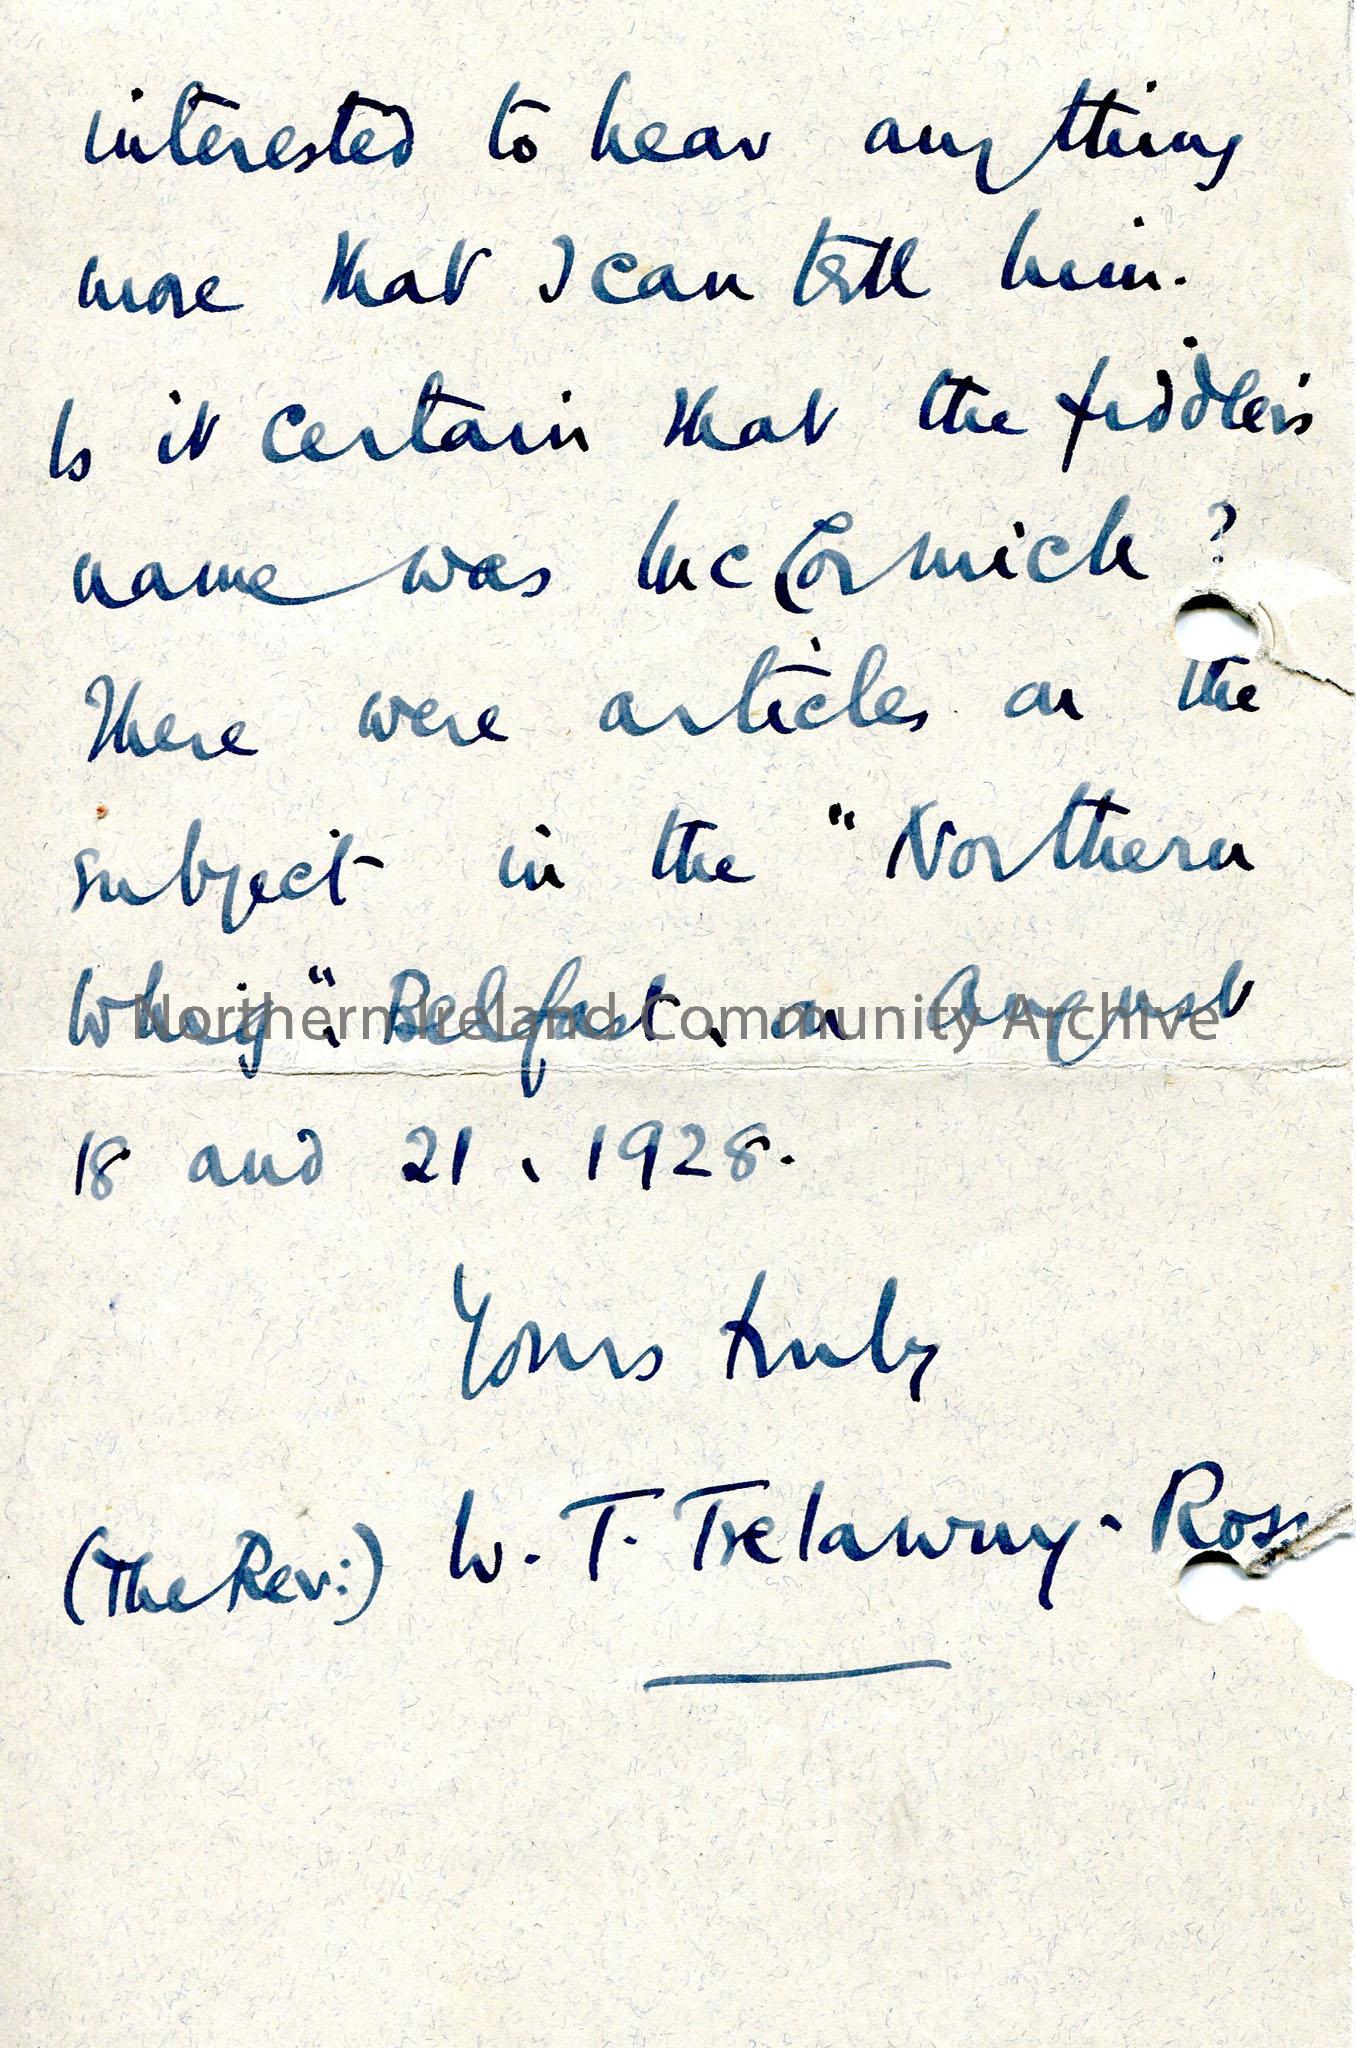 interested to hear anything
more that I can tell him.
Is it certain that the fiddler's
name was McCormick?
There were articles on the
subject in the "Northern
Whig", Belfast, on August
Northern Ireland Community Archive
18 and 21, 1928.
Yours truly
(The Rev:) W. T. Trelawny-Ross